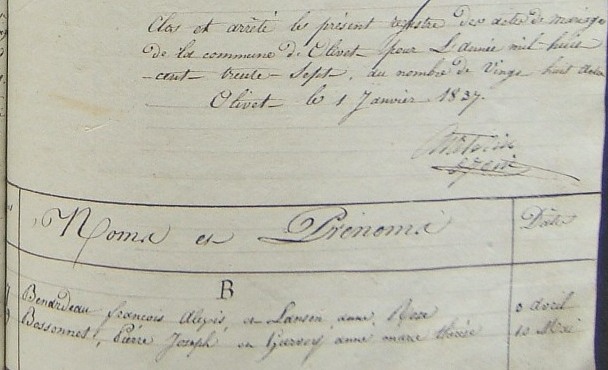 Clos et arrêté le présent registre des actes de mariage
de la commune d'Olivet pour L'année mil huit
cent trente Sept, au nombre de Vingt huit actes
Olivet le 1 Janvier 1837.
Noms et Prénoms
Dates
B
Benardeau françois Alexis et Lanson anne Rose 3 avril
Bessonnet, Pierre Joseph et hervoy anne marie thérèse 10 Mai